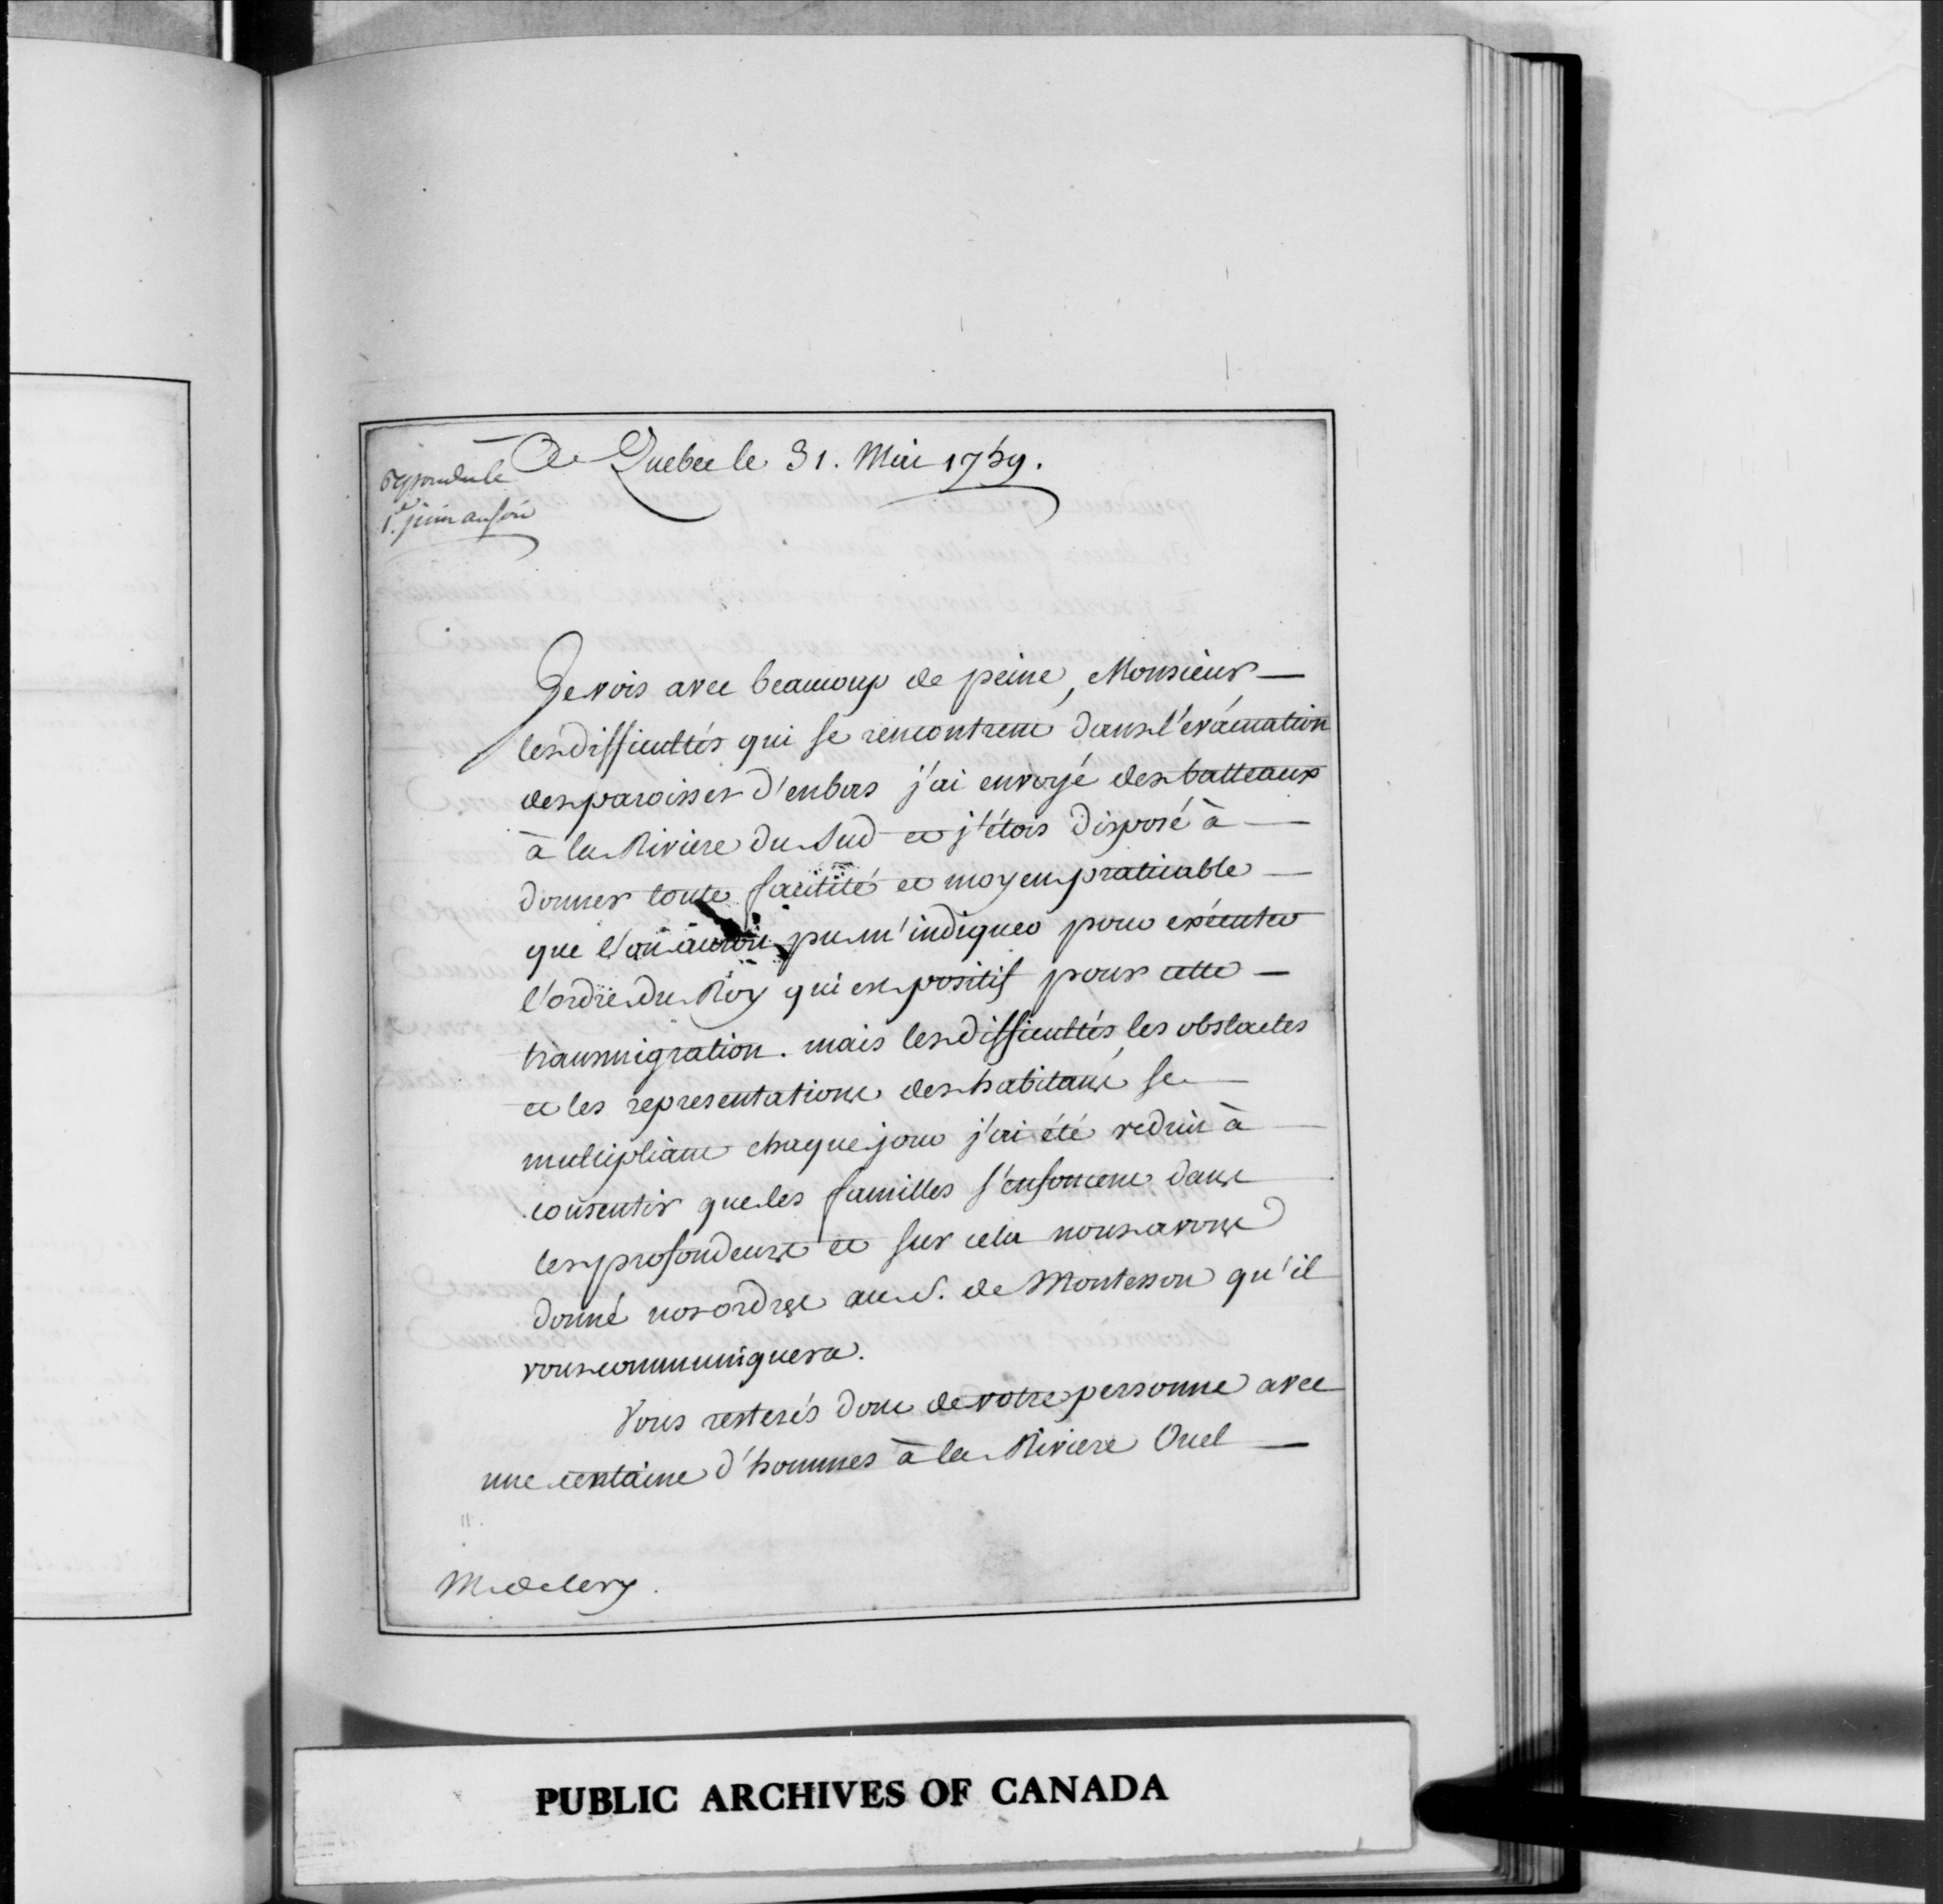 A Quebec le 31. Mai 1759.
repondu le
1er. juin au soir
Je vois avec beaucoup de peine, Monsieur
les difficultés qui se rencontrent dans l'evacuation
des paroisses d'enbas j'ai envoyé des batteaux
à la Riviere du Sud et j'étois disposé à
donner toute facilité et moyen praticable
que l'on auroit pu m'indiquer pour exécuter
l'ordre du Roy qui est positif pour cette
transmigration. mais les difficultés, les obstacles
et les representations des habitans se
multipliant chaque jour j'ai été reduit à
consentir que les familles s'enfoncent dans
les profondeurs et sur cela nous avons
donné nos ordres au S. de Montesson qu'il
vous communiquera.
Vous resterés donc de votre personne avec
une centaine d'hommes à la Riviere Ouel
M. de lery.
PUBLIC ARCHIVES OF CANADA